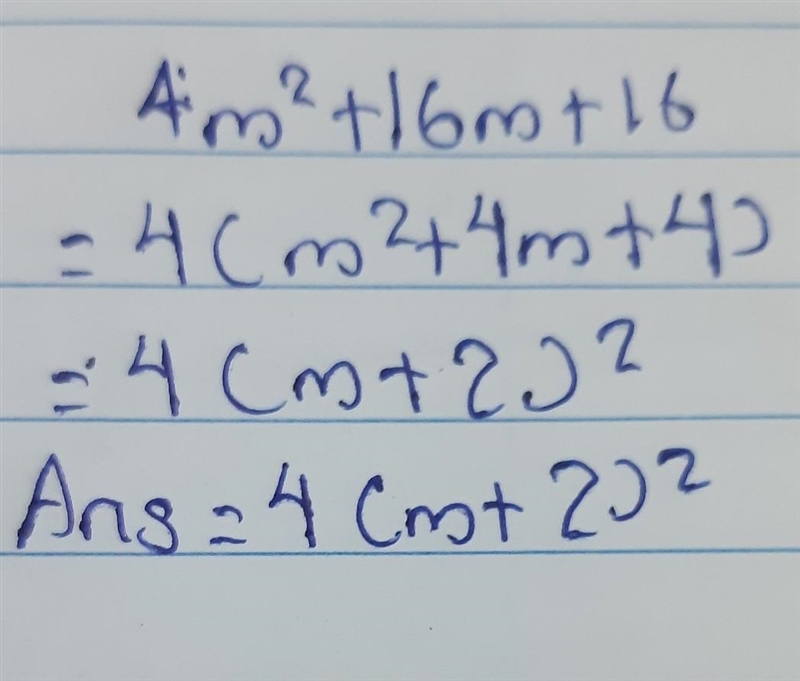 4m²+16m+16
= 4(m²+4m+4)
= 4(m+2)²
Ans = 4(m+2)²